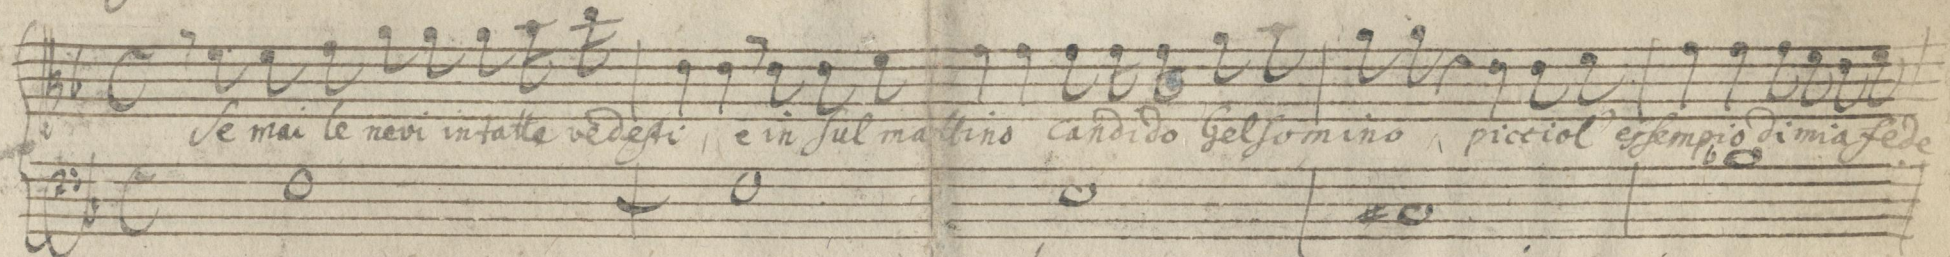 Se mai le nevi intatte vedesti, e in sul mattino candido Gelsomino, picciol' essempio di mia fede